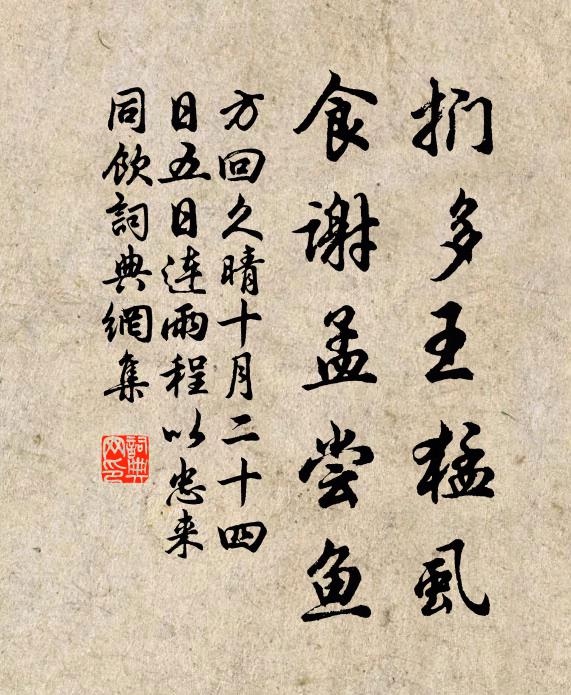 扪多王猛虱
食谢孟尝鱼
方回久晴十月二十四
日五日连雨程以忠来
同饮词典網集
詞典網印